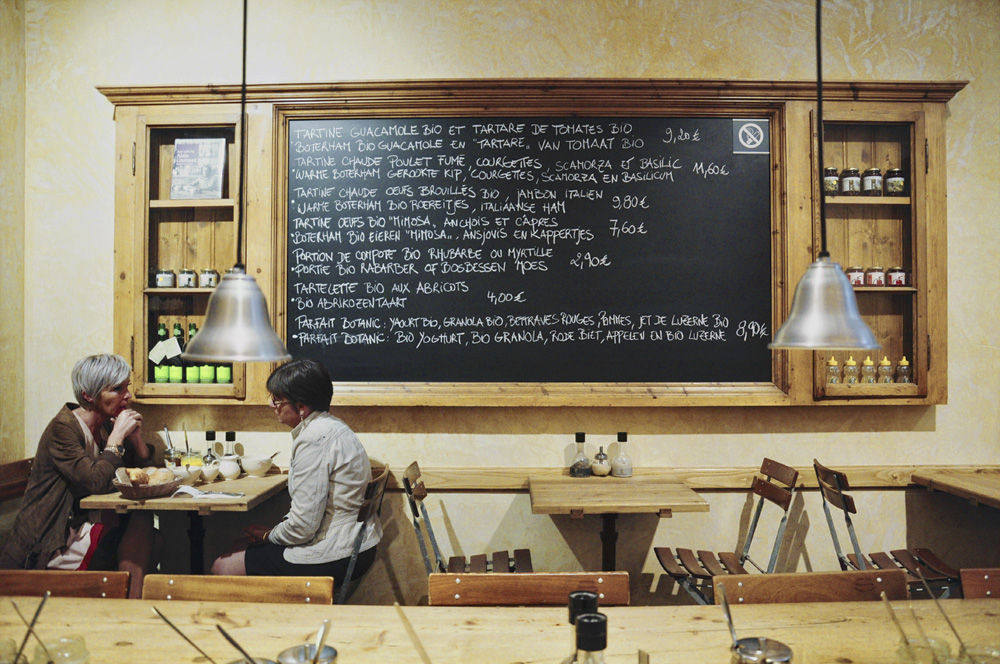 TARTINE GUACAMOLE BIO ET TARTARE DE TOMATES BIO 9,20€
*BOTERHAM BIO GUACAMOLE EN "TARTARE" VAN TOMAAT BIO
TARTINE CHAUDE POULET FUMÉ, COURGETTES, SCAMORZA ET BASILIC 11,60€
*WARME BOTERHAM GEROOKTE KIP, COURGETTES, SCAMORZA EN BASILICUM
TARTINE CHAUDE OEUFS BROUILLÉS BIO, JAMBON ITALIEN 9,80€
*WARME BOTERHAM BIO ROEREITJES, ITALIAANSE HAM
TARTINE OEUFS BIO "MIMOSA", ANCHOIS ET CÂPRES 7,60€
*BOTERHAM BIO EIEREN "MIMOSA", ANSJOVIS EN KAPPERTJES
PORTION DE COMPOTE BIO RHUBARBE OU MYRTILLE 2,90€
*PORTIE BIO RABARBER OF BOSBESSEN MOES
TARTELETTE BIO AUX ABRICOTS 4,00€
*BIO ABRIKOZENTAART
PARFAIT BOTANIC: YAOURT BIO, GRANOLA BIO, BETTRAVES ROUGES, POMMES, ET DE LUZERNE BIO 8,90€
*PARFAIT BOTANIC: BIO YOGHURT, BIO GRANOLA, RODE BIET, APPELEN EN BIO LUZERNE